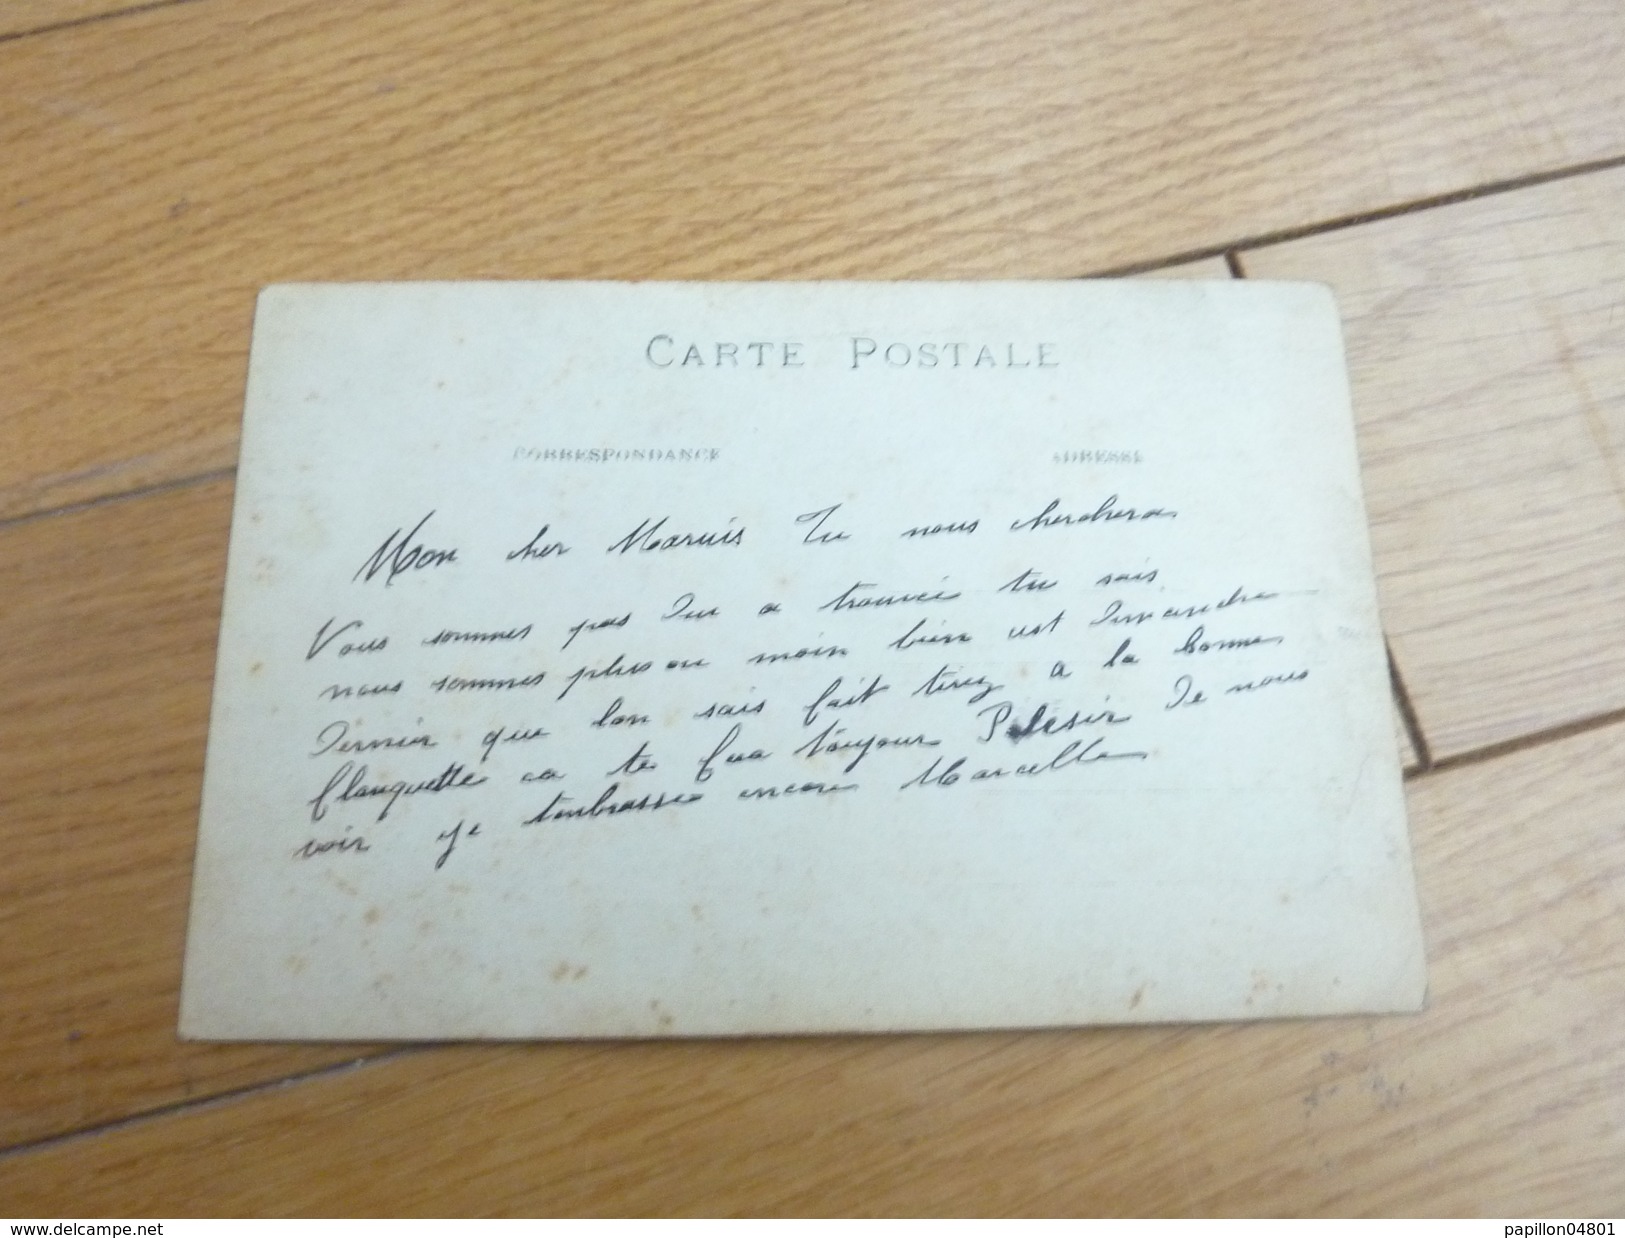 CARTE POSTALE
CORRESPONDANCE ADRESSE
Mon cher Maruis Tu nous cherchera
Vous sommes pas Du a trouvée tu sais
nous sommes plus ou moin bien est Dimanche
Dernier que lon sais fait tirez a la bonne
flanquette ca te fera toujour Plesir De nous
voir je tembrasse encore Marcelle
www.delcampe.net
papillon04801